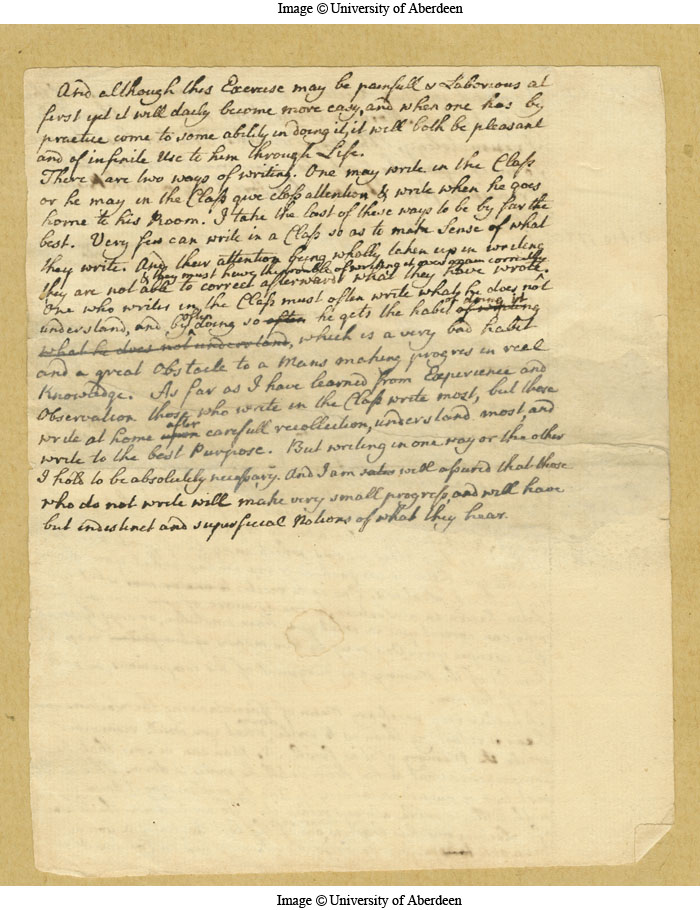 Image © University of Aberdeen
And although this Exercise may be painfull & Laborious at
first yet it will daily become more easy, and when one has by
practice come to some ability in doing it, it will both be pleasant
and of infinite Use to him through Life.
There are two ways of writing. One may write in the Class
or he may in the Class give closs attention & write when he goes
home to his Room. I take the last of these ways to be by far the
best. Very few can write in a Class so as to make Sense of what
they write. And their attention being wholly taken up in writing
& they must have the trouble of writing it over again correctly
they are not able to correct afterward what they have wrote.
One who writes in the Class must often write what he does not
often of doing it
understand, and by doing so often he gets the habit of writing
what he does not understand, which is a very bad habit
and a great Obstacle to a Mans making progres in real
Knowledge. As far as I have learned from Experience and
Observation those who write in the Class write most, but those
after
write at home upon carefull recollection, understand most, and
write to the best Purpose. But writing in one way or the other
I hold to be absolutely necessary. And I am well assured that those
who do not write will make very small progress, and will have
but indistinct and superficial Notions of what they hear.
Image © University of Aberdeen